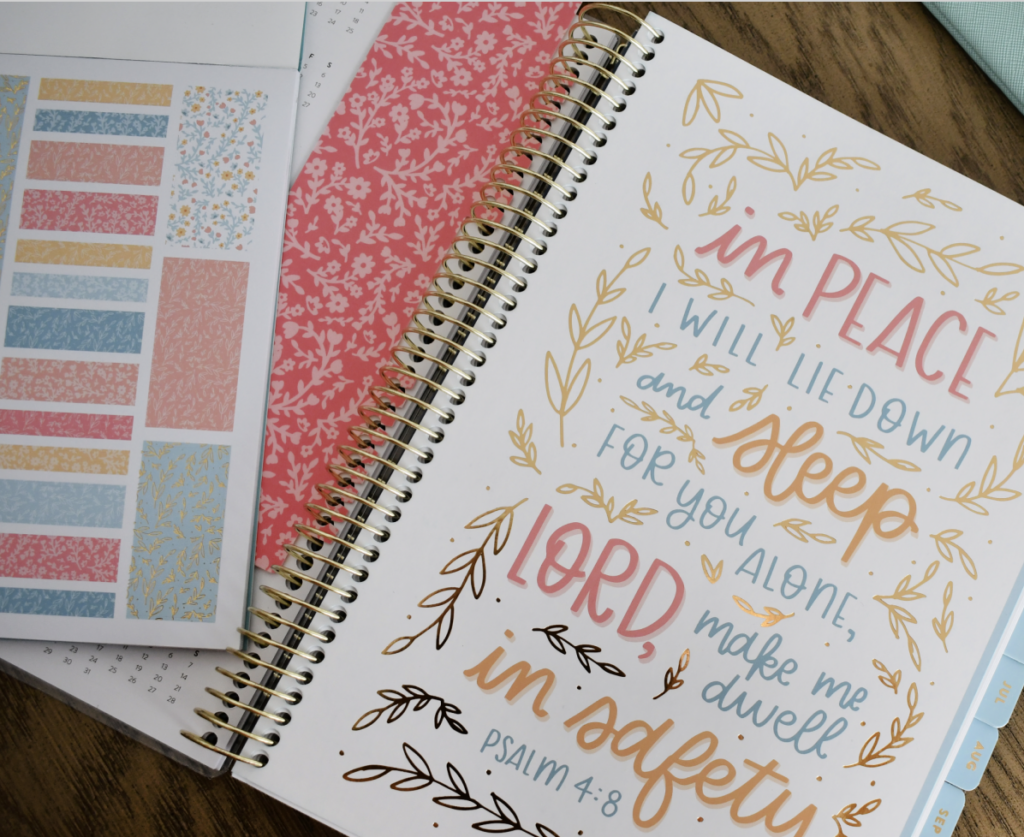 in PEACE
I WILL LIE DOWN
and sleep
FOR you ALONE,
LORD, make me
dwell
in safety
PSALM 4:8
JUL
AUG